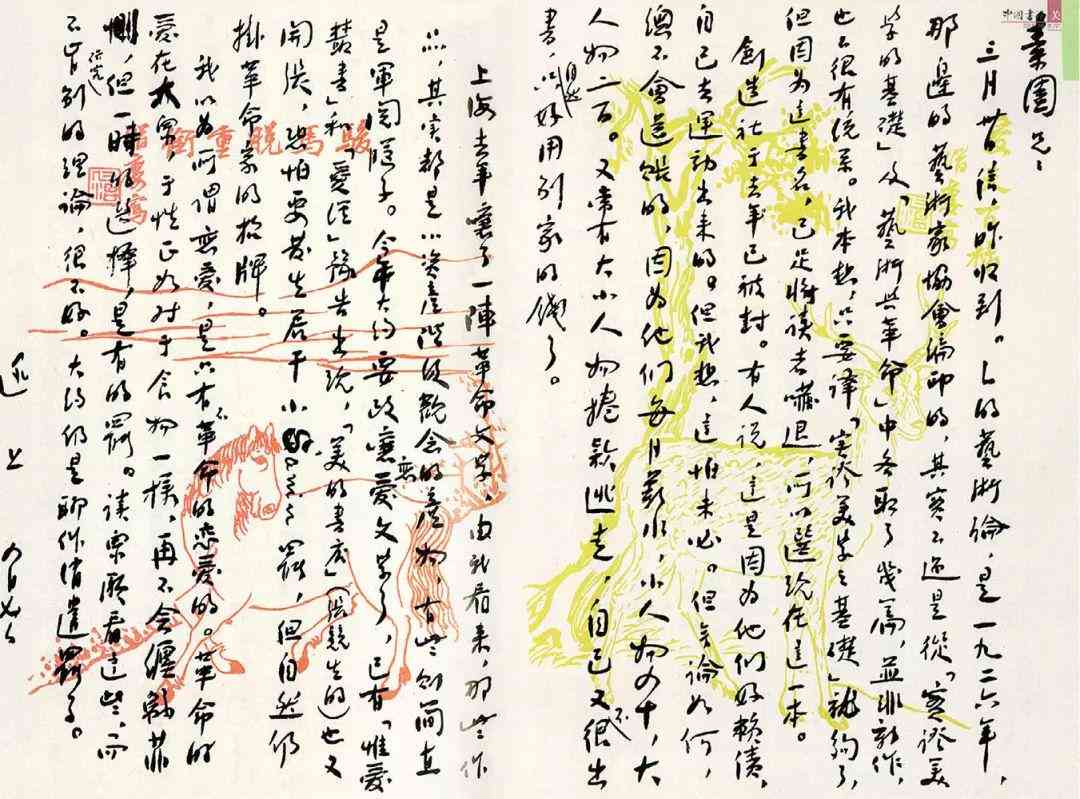 中國書
美
素園兄：
三月卅日信，昨收到。L的藝術論，是一九二六年，
那邊的藝術家協會編印的，其實不過是從「實證美
学的基礎」及「藝術與革命」中各取了幾篇，並非新作，
也不很有統系。我本想，只要譯「实證美学之基礎」就夠了，
但因为這書名，已足將讀者嚇退，所以選現在這一本。
創造社于去年已被封。有人說，這是因为他们好賴債，
自己去運動出来的。但我想，這怕未必。但無論如何，
總不會還賬的，因为他们每月薪水，小人物四十，大
人物二百。又常有大小人物捲款逃走，自己又不很出
書，自然只好用别家的錢了。
上海去年嚷了一陣革命文学，由我看来，那些作
品，其实都是小资產階级觀念的產物，有些则简直
是軍閥腦子。今年大约要改嚷戀愛文学了，已有「惟愛
叢書」和「愛經」豫告出现，「美的書店」（張競生的）也又
開張，恐怕要發生若干小Sanin罷，但自然仍
掛革命家的招牌。
我以为所謂恋愛，是只有不革命的恋愛的。革命的
愛在大眾，于性正如对于食物一樣，再不會纏綿菲
惻，但一時的選擇，是有的罷。讀眾願看這些，而
不肯研究别的理論，很不好。大约仍是聊作消遣罷了。
迅 上 四月七日
駿馬脱重衔